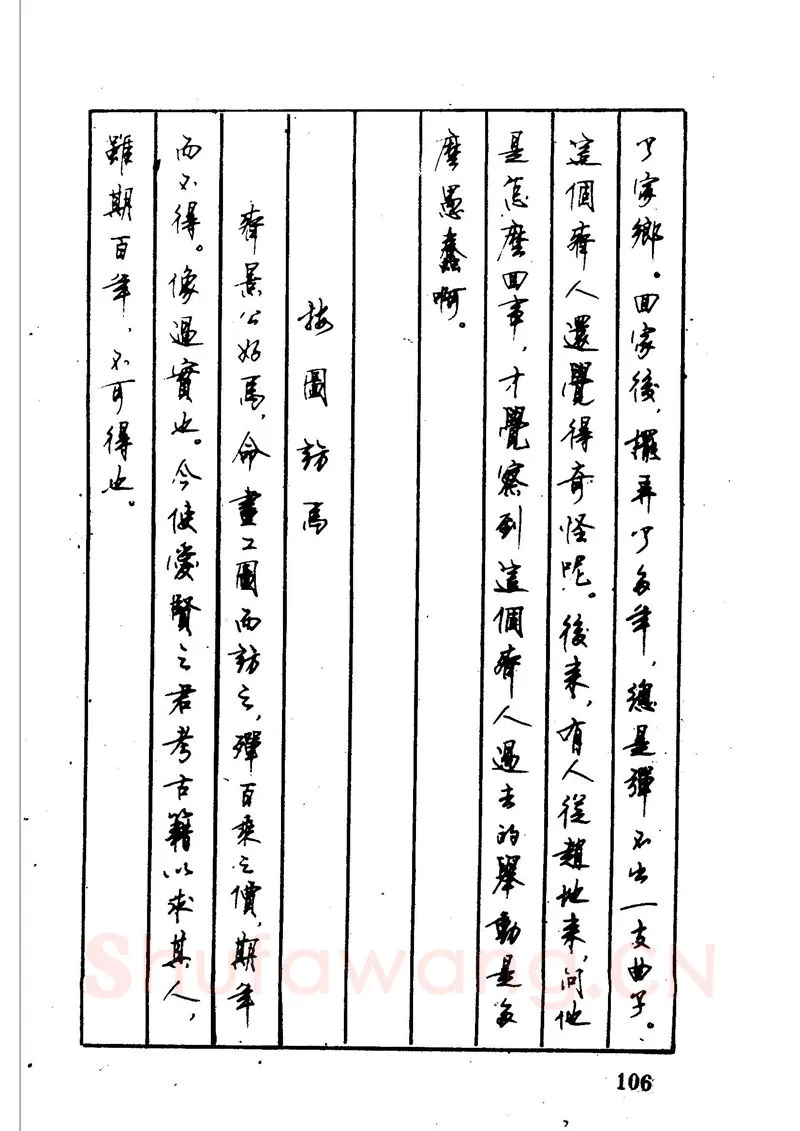 了家鄉。回家後,擺弄了多年,總是彈不出一支曲子。
這個齊人還覺得奇怪呢。後来,有人從趙地来,问他
是怎麽回事,才覺察到這個齊人過去的舉動是多
麽愚蠢啊。
按圖訪馬
齊景公好馬,命畫工圖而訪之,殫百乘之價,期年
而不得。像過實也。今使愛賢之君考古籍以求其人,
雖期百年,不可得也。
106
Shufawang.CN